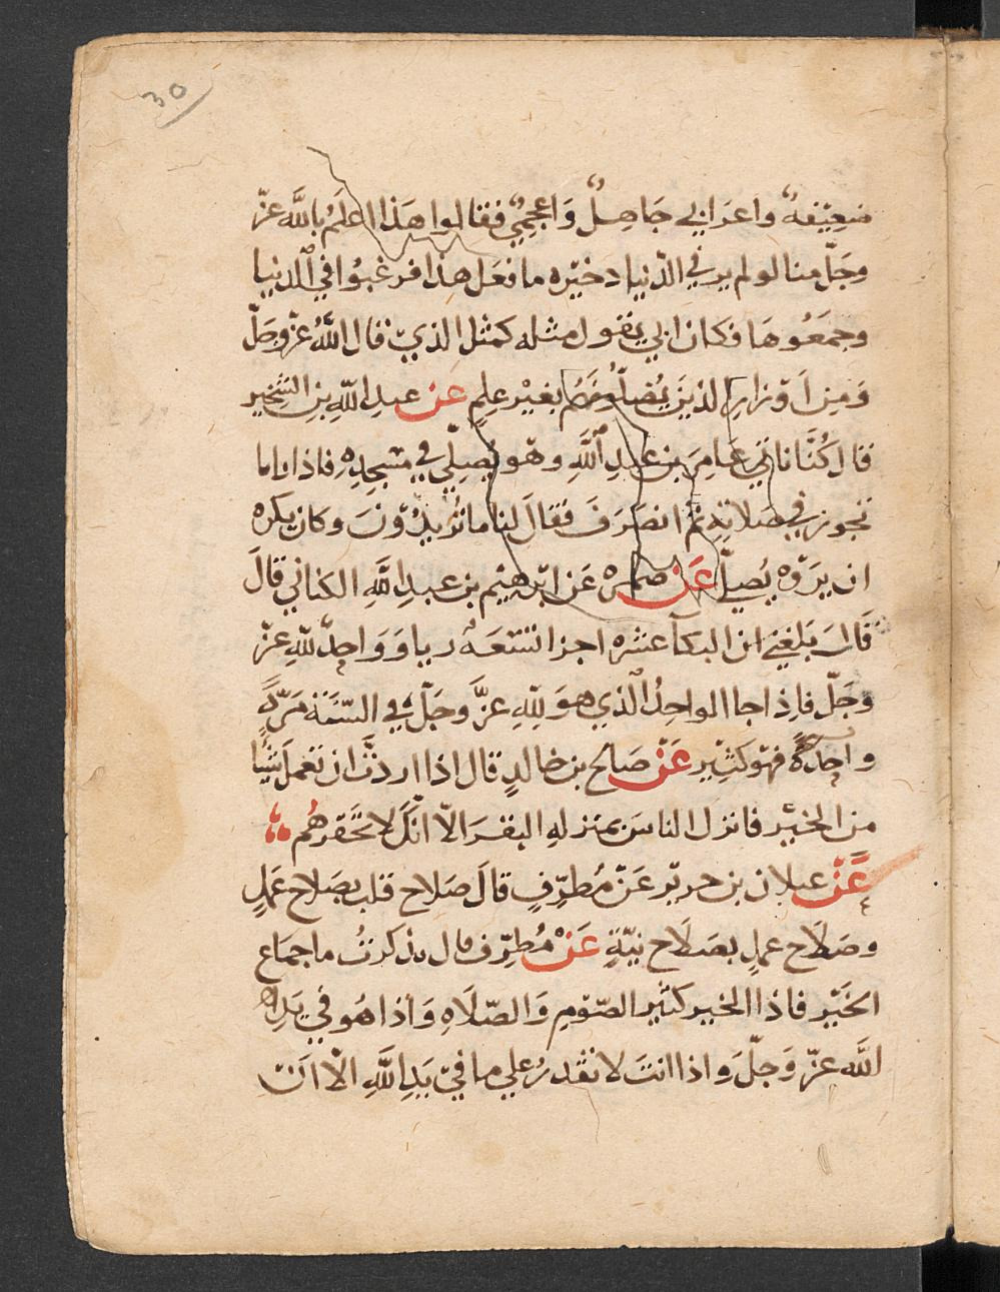 30
ضعيفه واعرابي جاهل واعجمي فقالوا هذا اعلم بالله عزّ
وجلّ منا لو لم ير في الدنيا دخيره ما فعل هذا فرغبوا في الدنيا
وجمعوها فكان ابي يقول مثله كمثل الذي قال الله عزّ وجلّ
ومن اوزار الذين يضلونهم بغير علم عن عبد الله بن الشخير
قال كنّا ناتي عامر بن عبد الله وهو يصلي في مسجده فاذا رانا
تجوز في صلاته ثم انصرف فقال لنا ما تريدون وكان يكره
ان يروه يصلي عن ضمره عن ابرهيم بن عبد الله الكناني قال
قال بلغني ان البكآ عشره اجزا تسعه ريا وواحد لله عزّ
وجلّ فاذا جا الواحد الذي هو لله عزّ وجلّ في السنة مرّة
واحدة فهو كثير عن صالح بن خالد قال اذا اردت ان تعمل شيا
من الخير فانزل الناس بمنزله البقر الّا انّك لا تحقرهم
عن عيلان بن جرير عن مطرّف قال صلاح قلب بصلاح عمل
وصلاح عمل بصلاح نيّة عن مطرّف قال تذكرت ما جماع
الخير فاذا الخير كثير الصوم والصّلاه واذا هو في يد
الله عزّ وجلّ واذا انت لا تقدر علي ما في يد الله الا ان